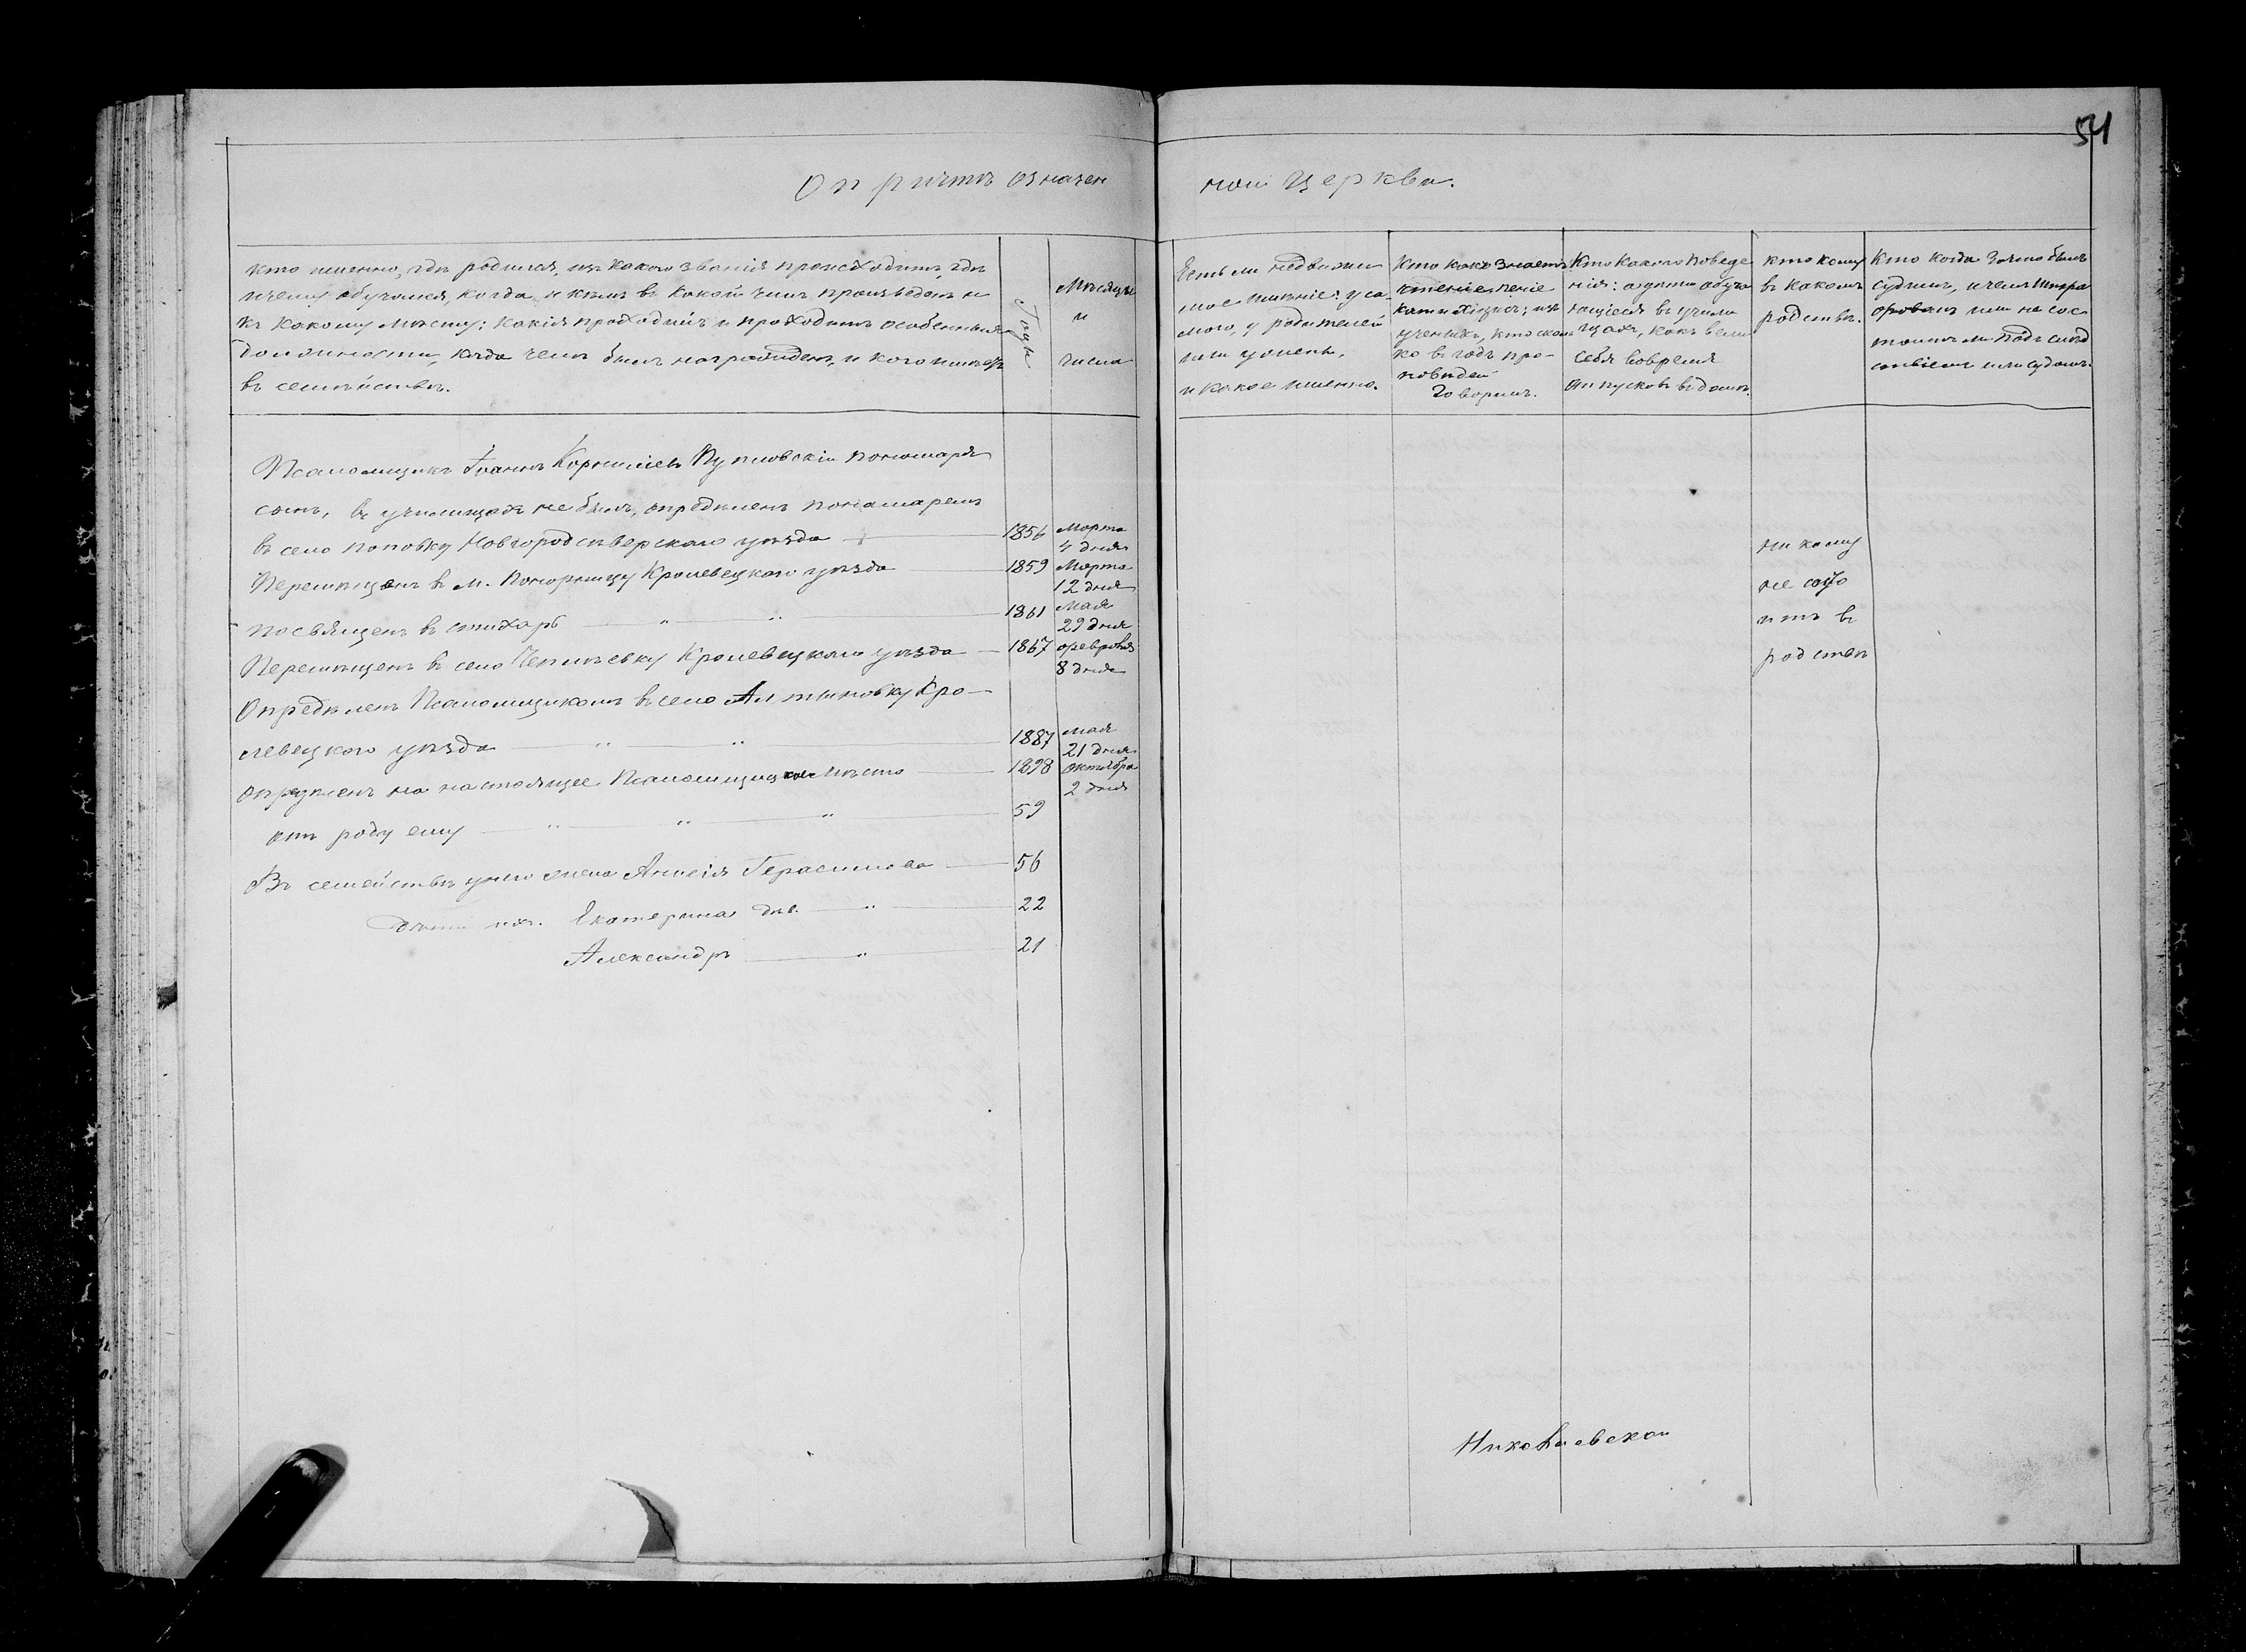 54
О причтѣ означен ной церкви.
Кто именно, гдѣ родился, изъ какого званія происходитъ, гдѣ
и чему обучался, когда и кѣмъ въ какой чинъ произведенъ и
къ какому мѣсту; какія проходилъ и проходитъ особенныя
должности, когда чемъ былъ награжденъ, и кого имѣетъ
въ семѣйствѣ.
Годы
Мѣсяцы
и
числа
Есть ли недвижи
мое имѣніе: у са-
мого, у родителей
или у жены,
и какое именно.
Кто како знаетъ
чтеніе пеніе
катихизисъ; изъ
ученыхъ, кто сколь
ко въ годъ про-
повѣдей
говоритъ.
Кто какого поведе
нія: а дѣти обуча
ющіеся въ учили
щахъ, какъ вели
себя вовремя
отпусковъ въ домъ.
Кто кому
въ какомъ
родствѣ.
Кто когда за что былъ
судимъ, и чемъ штра
фованъ или не сос
тоитъ ли подъ слѣд
ствіемъ или судомъ.
Псаломщикъ Іоаннъ Корниліев Пуплювскій пономаря
сынъ, въ училищахъ не былъ, опредѣленъ пономаремъ
въ село Поповку Новгородсѣверскаго уѣзда 1856 Марта
4 дня
Перемѣщенъ въ м. Понорницу Кролевецкаго уѣзда 1859 Марта
12 дня
посвященъ въ стихарь " " 1861 Мая
29 дня
Перемѣщенъ въ село Чепліевку Кролевецкаго уѣзда 1867 февраля
8 дня
Опредѣленъ Псаломщикомъ въ село Алтыновку Кро-
левецкого уѣзда " " 1887 Мая
21 дня
Опредѣленъ на настоящее Псаломщицкое мѣсто 1898 Октября
2 дня
отъ роду ему " " " 59
Въ семействѣ у него жена Анисія Герасимова 56
дѣти ихъ. Екатерина дѣв. " 22
Александръ " 21
ни кому
не состо
итъ въ
родствѣ
Николаевской